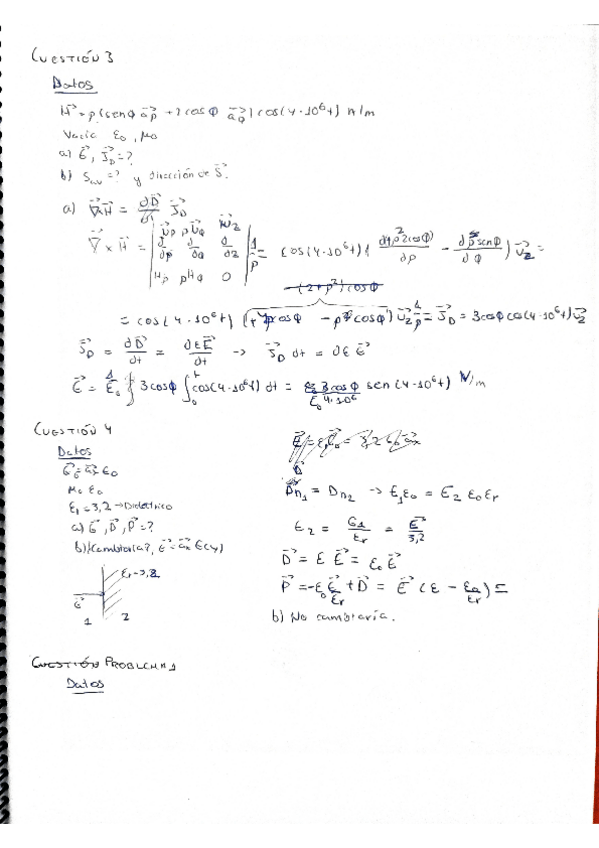 CUESTIÓN 3
Datos
H⃗ = ρ(senφ a⃗ρ + 2cosφ a⃗φ) cos(4·10⁶t) A/m
Vacío ε₀, μ₀
a) E⃗, J⃗_D = ?
b) S_av = ? y dirección de S⃗.
a) ∇⃗×H⃗ = ∂D⃗/∂t J⃗_D
∇⃗ × H⃗ = | u⃗ρ ρu⃗φ u⃗z ; ∂/∂ρ ∂/∂φ ∂/∂z ; Hρ ρHφ 0 | 1/ρ = cos(4·10⁶t) ( ∂(ρ²2cosφ)/∂ρ − ∂ρsenφ/∂φ ) u⃗z =
(2+ρ²)cosφ
= cos(4·10⁶t) (4ρcosφ − ρcosφ) u⃗z 1/ρ = J⃗_D = 3cosφ cos(4·10⁶t) u⃗z
J⃗_D = ∂D⃗/∂t = ∂εE⃗/∂t → J⃗_D dt = ∂ε E⃗
E⃗ = 1/ε₀ ∫ 3cosφ ∫₀ᵗ cos(4·10⁶t) dt = 3cosφ/(ε₀ 4·10⁶) sen(4·10⁶t) V/m
CUESTIÓN 4
Datos
E⃗₀ = a⃗x E₀
μ₀ ε₀
εr = 3,2 → Dieléctrico
a) E⃗, D⃗, P⃗ = ?
b) ¿Cambiaría?, E⃗ = a⃗x E(y)
εr = 3,2
E⃗
1 2
Dn₁ = Dn₂ → E₁ε₀ = E₂ ε₀εr
E₂ = E₁/εr = E⃗/3,2
D⃗ = ε E⃗ = ε₀E⃗
P⃗ = −ε₀ E⃗/εr + D⃗ = E⃗ (ε − ε₀/εr) =
b) No cambiaría.
CUESTIÓN PROBLEMA 1
Datos